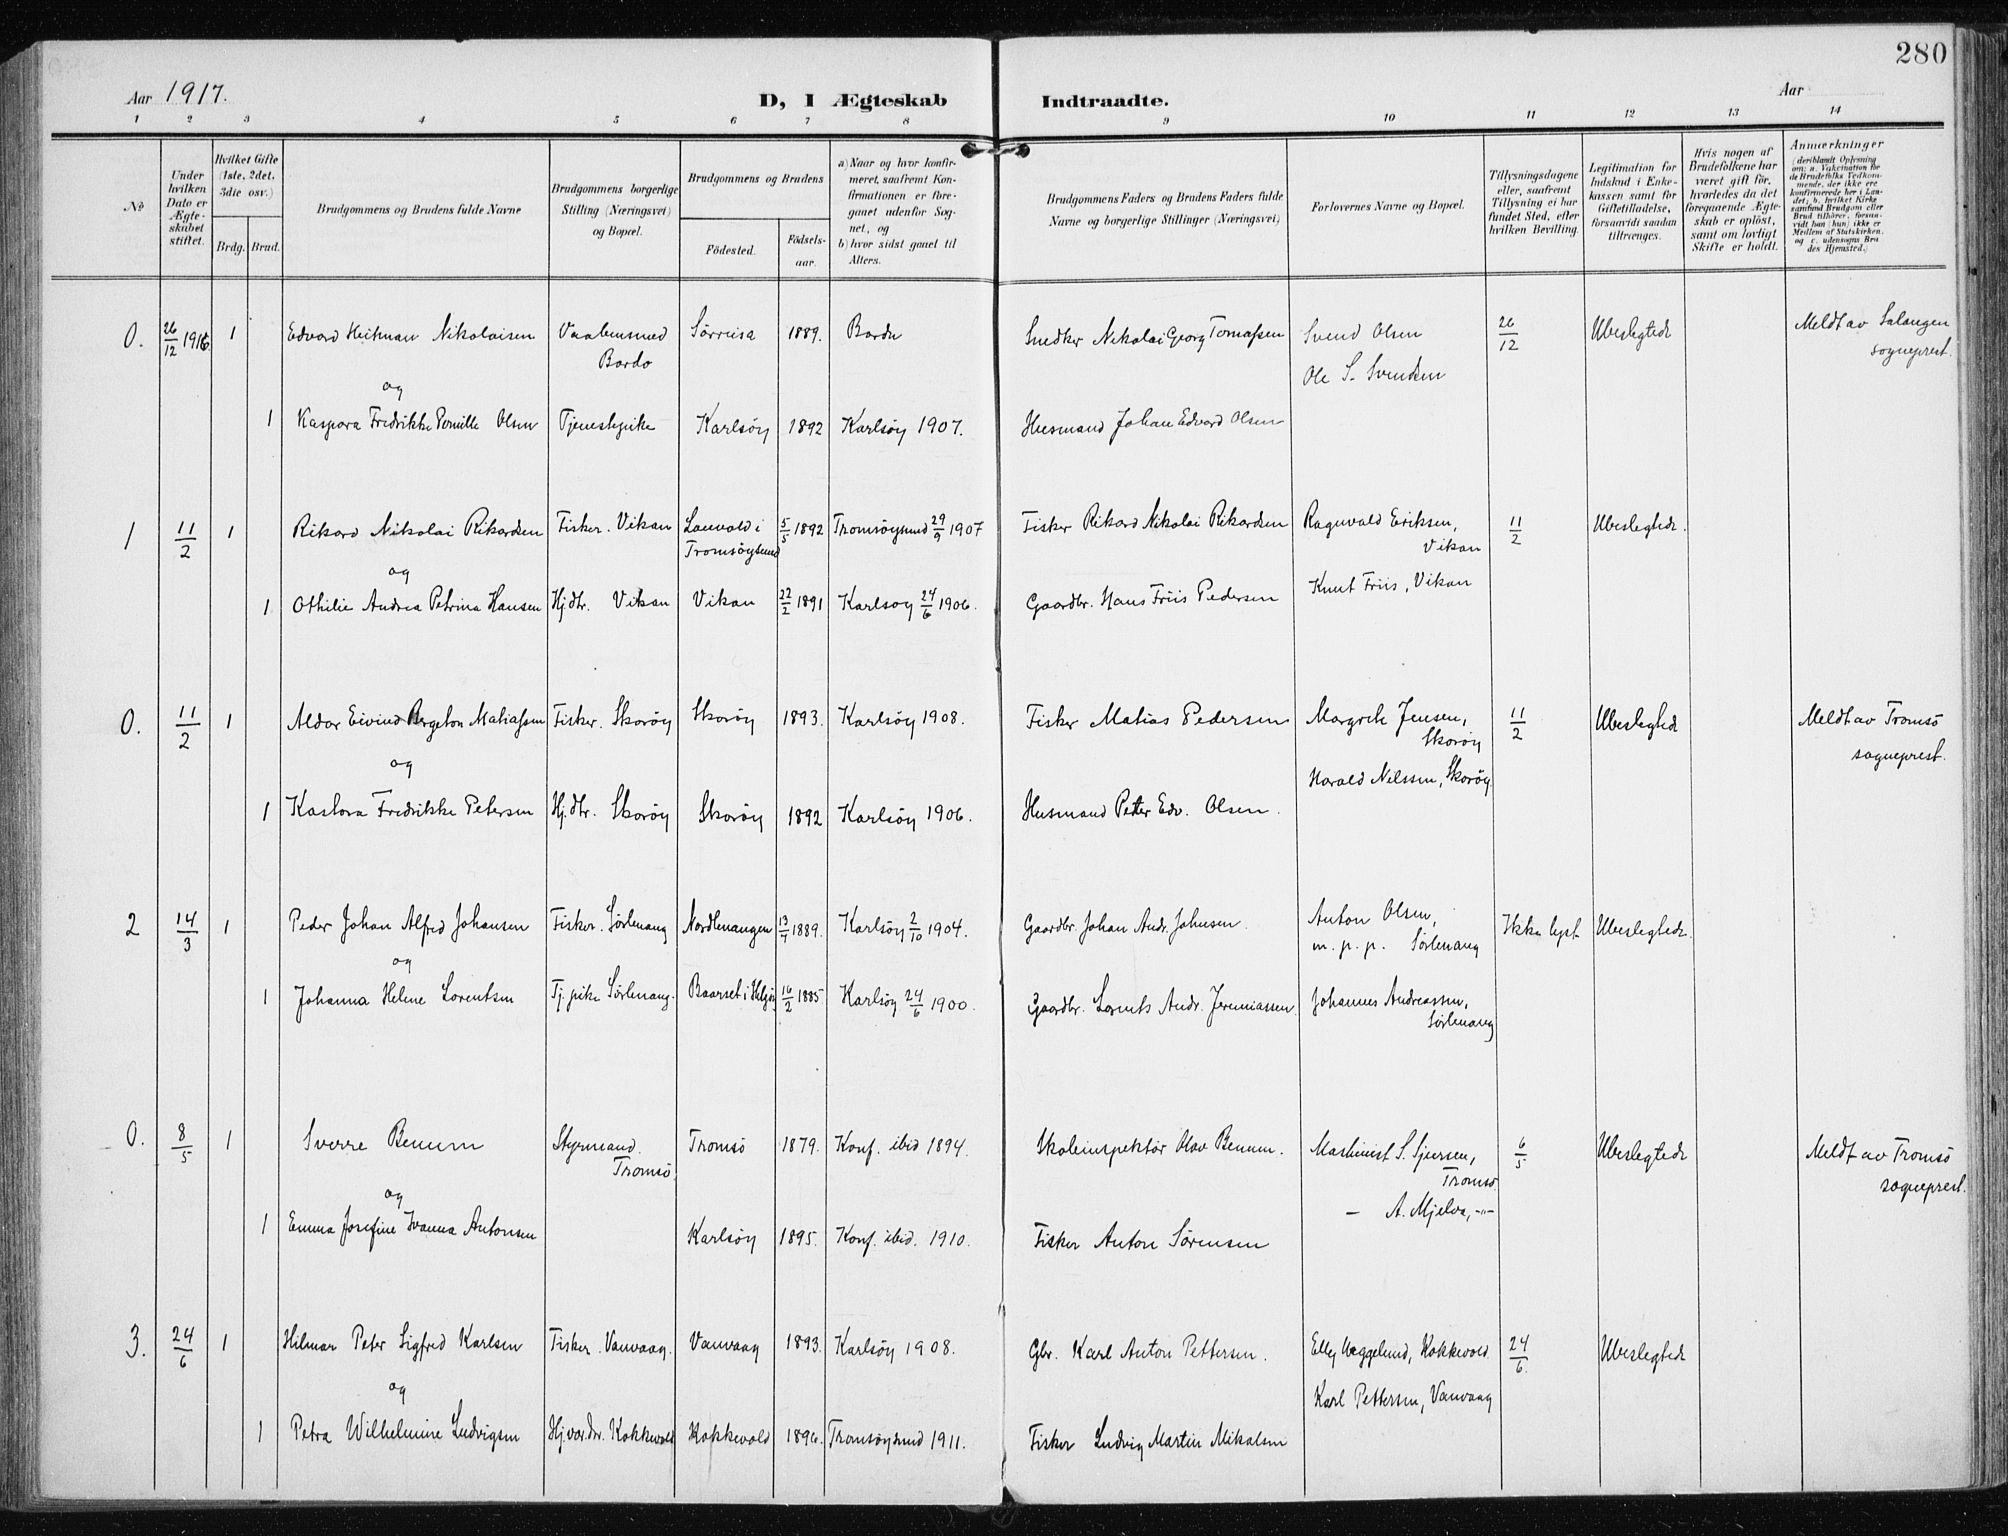 280
Aar 1917.
D, I Ægteskab Indtraadte.
Aar
1 2 3 4 5 6 7 8 9 10 11 12 13 14
№
Under hvilken Dato er Ægteskabet stiftet.
Hvilket Gifte (1ste, 2det, 3die osv.)
Brdg. Brud.
Brudgommens og Brudens fulde Navne
Brudgommens borgerlige Stilling (Næringsvei) og Bopæl.
Brudgommens og Brudens
Fødested. Fødsels-aar.
a) Naar og hvor konfirmeret, saafremt Konfirmationen er foregaaet udenfor Sognet, og
b) hvor sidst gaaet til Alters.
Brudgommens Faders og Brudens Faders fulde Navne og borgerlige Stillinger (Næringsvei)
Forlovernes Navne og Bopæl.
Tillysningsdagene eller, saafremt Tillysning ei har fundet Sted, efter hvilken Bevilling.
Legitimation for Indskud i Enkekassen samt for Giftetilladelse, forsaavidt saadan tiltrænges.
Hvis nogen af Brudefolkene har været gift før, hvorledes da det foregaaende Ægteskab er opløst, samt om lovligt Skifte er holdt.
Anmærkninger
(deriblandt Oplysning om: a. Vakcination for de Brudefolks Vedkommende, der ikke ere konfirmerede her i Landet; b. hvilket Kirkesamfund Brudgom eller Brud tilhører, forsaavidt han (hun) ikke er Medlem af Statskirken, og c. udensogns Brudes Hjemsted.)
0. 26/12 1916 1 Edvard Heitman Nikolaisen Vaabensmed Sørreisa 1889. Bardu Snedker Nikolai Georg Tomassen Svend Olsen 26/12 Ubeslegtede Meldt av Salangen
Bardo Ole S. Svendsen sogneprest.
og
1 Kaspara Fredrikke Pernille Olsen Tjenestepike Karlsöy 1892 Karlsöy 1907. Husmand Johan Edvard Olsen
1 11/2 1 Rikard Nikolai Rikardsen Fisker. Vikan Lauvold i 5/5 1892 Tromsöysund 29/9 1907 Fisker Rikard Nikolai Rikardsen Ragnvald Eriksen, 11/2 Ubeslegtede.
Tromsöysund Vikan
og
1 Othilie Andrea Petrina Hansen Hj.dtr. Vikan Vikan 22/2 1891 Karlsoy 24/6 1906. Gaardbr. Hans Friis Pedersen Knut Friis, Vikan
0. 11/2 1 Aldor Eivind Bergeton Matiassen Fisker. Skoröy Skoröy 1893. Karlsöy 1908. Fisker Matias Pedersen Margrete Jensen, 11/2 Ubeslegtede Meldt av Tromsö
Skoröy sogneprest.
og
Harald Nilssen, Skoröy
1 Kastora Fredrikke Petersen Hj.dtr. Skoröy Skoröy 1892 Karlsöy 1906. Husmand Peter Edv. Olsen.
2 14/3 1 Peder Johan Alfred Johansen Fisker. Sörlenang Nordlenangen 13/7 1889. Karlsöy 2/10 1904. Gaardbr. Johan Andr. Johnsen. Anton Olsen, Ikke lyst Ubeslegtede.
m. p. p. Sörlenang
og
1 Johanna Helene Lorentsen Tj. pike Sörlenang. Baarset i Helgöy 16/2 1885 Karlsöy 24/6 1900. Gaardbr. Lorents Andr. Jeremiassen. Johannes Andreassen,
Sörlenang
0. 8/5 1 Sverre Benum Styrmand. Tromsö 1879. Konf. ibid 1894. Skoleinspektör Olav Benum. Maskinist S. Sjursen, 6/5 Ubeslegtede Meldt av Tromsö
Tromsö. Tromsö. sogneprest.
og
1 Emma Josefine Ivanna Antonsen Karlsöy 1895. Konf. ibid. 1910. Fisker Anton Sörensen — A. Mjelva, -"-
3. 24/6 1 Hilmar Peter Sigfred Karlsen Fisker. Vanvaag. Vanvaag 1893. Karlsöy 1908. Gbr. Karl Anton Pettersen. Elley Hæggelund, Kokkevold 24/6. Ubeslegtede
og
Karl Pettersen, Vanvaag
1 Petra Wilhelmine Ludvigsen Hj.vær.dtr. Kokkevold Kokkevold 1896. Tromsöysund 1911. Fisker Ludvig Martin Mikalsen